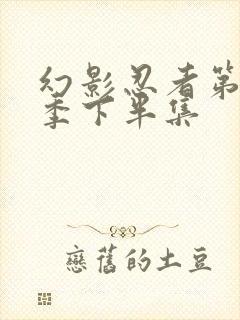 幻影忍者第
季下半集
戀舊的土豆